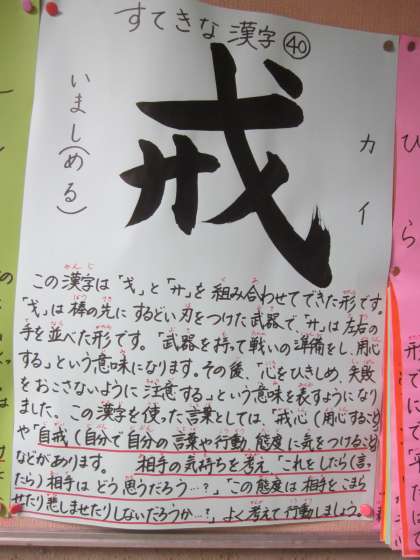 すてきな漢字㊵
戒
いまし(める)
カイ
この漢字は「戈」と「廾」を組み合わせてできた形です。
「戈」は棒の先にするどい刃をつけた武器で、「廾」は左右の
手を並べた形です。「武器を持って戦いの準備をし、用心
する」という意味になります。その後、「心をひきしめ、失敗
をおこさないように注意する」という意味を表すようになり
ました。この漢字を使った言葉としては「戒心(用心すること)
や「自戒(自分で自分の言葉や行動、態度に気をつけること)
などがあります。 相手の気持ちを考え「これをしたら(言っ
たら)相手はどう思うだろう…?」「この態度は相手をこまら
せたり悲しませたりしないだろうか…?」よく考えて行動しましょう。
ひら